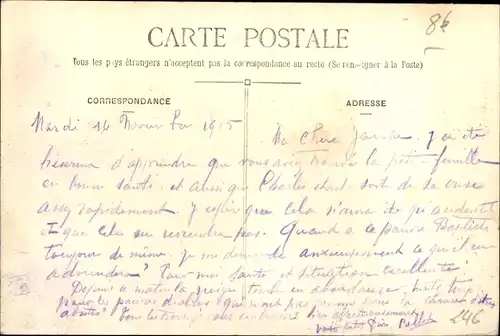 86
CARTE POSTALE
Tous les pays étrangers n'acceptent pas la correspondance au recto (Se renseigner à la Poste)
CORRESPONDANCE
ADRESSE
Mardi 16 1915
Ma chère j'ai été
heureux d'apprendre que vous avez trouvé la petite famille
en bonne santé, et aussi que Charles était sorti de sa crise
assez rapidement. J'espère que cela n'aura été qu'accidentel
et que cela se pas. Quand à ce pauvre Baptiste
toujours de même, je me demande anxieusement ce qu'il en
adviendra? Pour moi santé et situation excellente!
Depuis ce matin la neige tombe en abondance,
pour les pauvres qui n'ont pas comme nous la chance d'être
abrités!
bien affectueusement
246